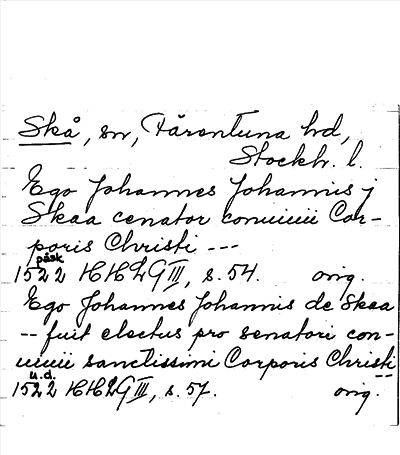 Skå, sn, Färentuna hd,
Stockh. l.
Ego Johannes Johannis j
Skaa cenator conuiuii Cor-
poris Christi ---
påsk
1522 HHLG III, s. 54. orig.
Ego Johannes Johannis de Skaa
-- fuit electus pro senatori con-
uiuii sanctissimi Corporis Christi
u.d. --
1522 HHLG III, s. 57. orig.